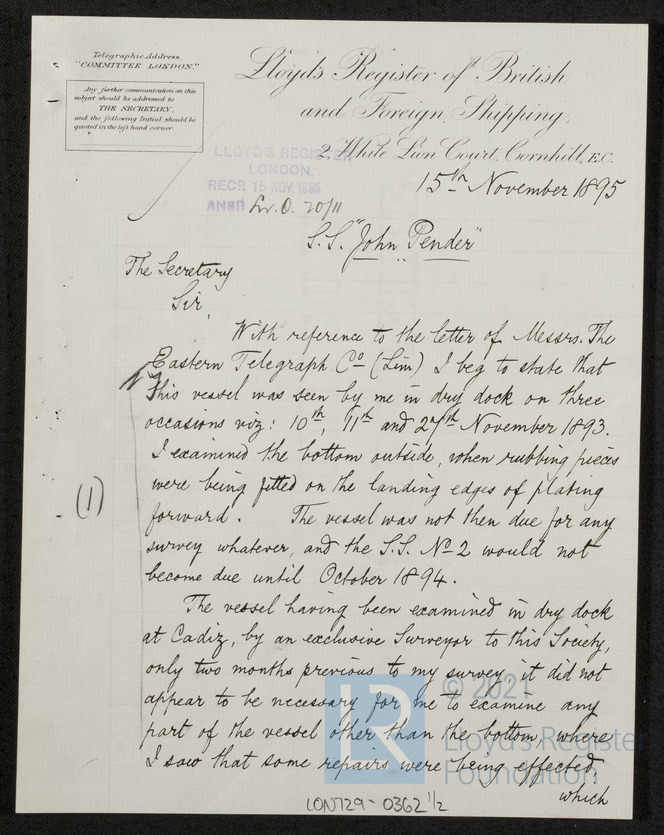 Telegraphic Address,
"COMMITTEE LONDON."
Any further communication on this
subject should be addressed to
THE SECRETARY,
and the following Initial should be
quoted in the left hand corner:
Lloyd's Register of British
and Foreign Shipping,
2 White Lion Court, Cornhill, E.C.
LLOYD'S REGISTER
LONDON.
RECP. 15 NOV. 1895
ANSR
20/11
15th November 1895
S.S. "John Pender"
The Secretary
Sir,
With reference to the letter of Messrs. The
Eastern Telegraph Co (Lim) I beg to state that
this vessel was seen by me in dry dock on three
occasions viz: 10th, 11th and 27th November 1893
I examined the bottom outside, when rubbing pieces
were being fitted on the landing edges of plating
forward. The vessel was not then due for any
survey whatever, and the S.S. No 2 would not
become due until October 1894.
(1)
The vessel having been examined in dry dock
at Cadiz, by an exclusive Surveyor to this Society,
only two months previous to my survey it did not
appear to be necessary for me to examine any
part of the vessel other than the bottom, where
I saw that some repairs were being effected
which
LON729-0362 1/2
LR
© 2021
Lloyd's Register
Foundation